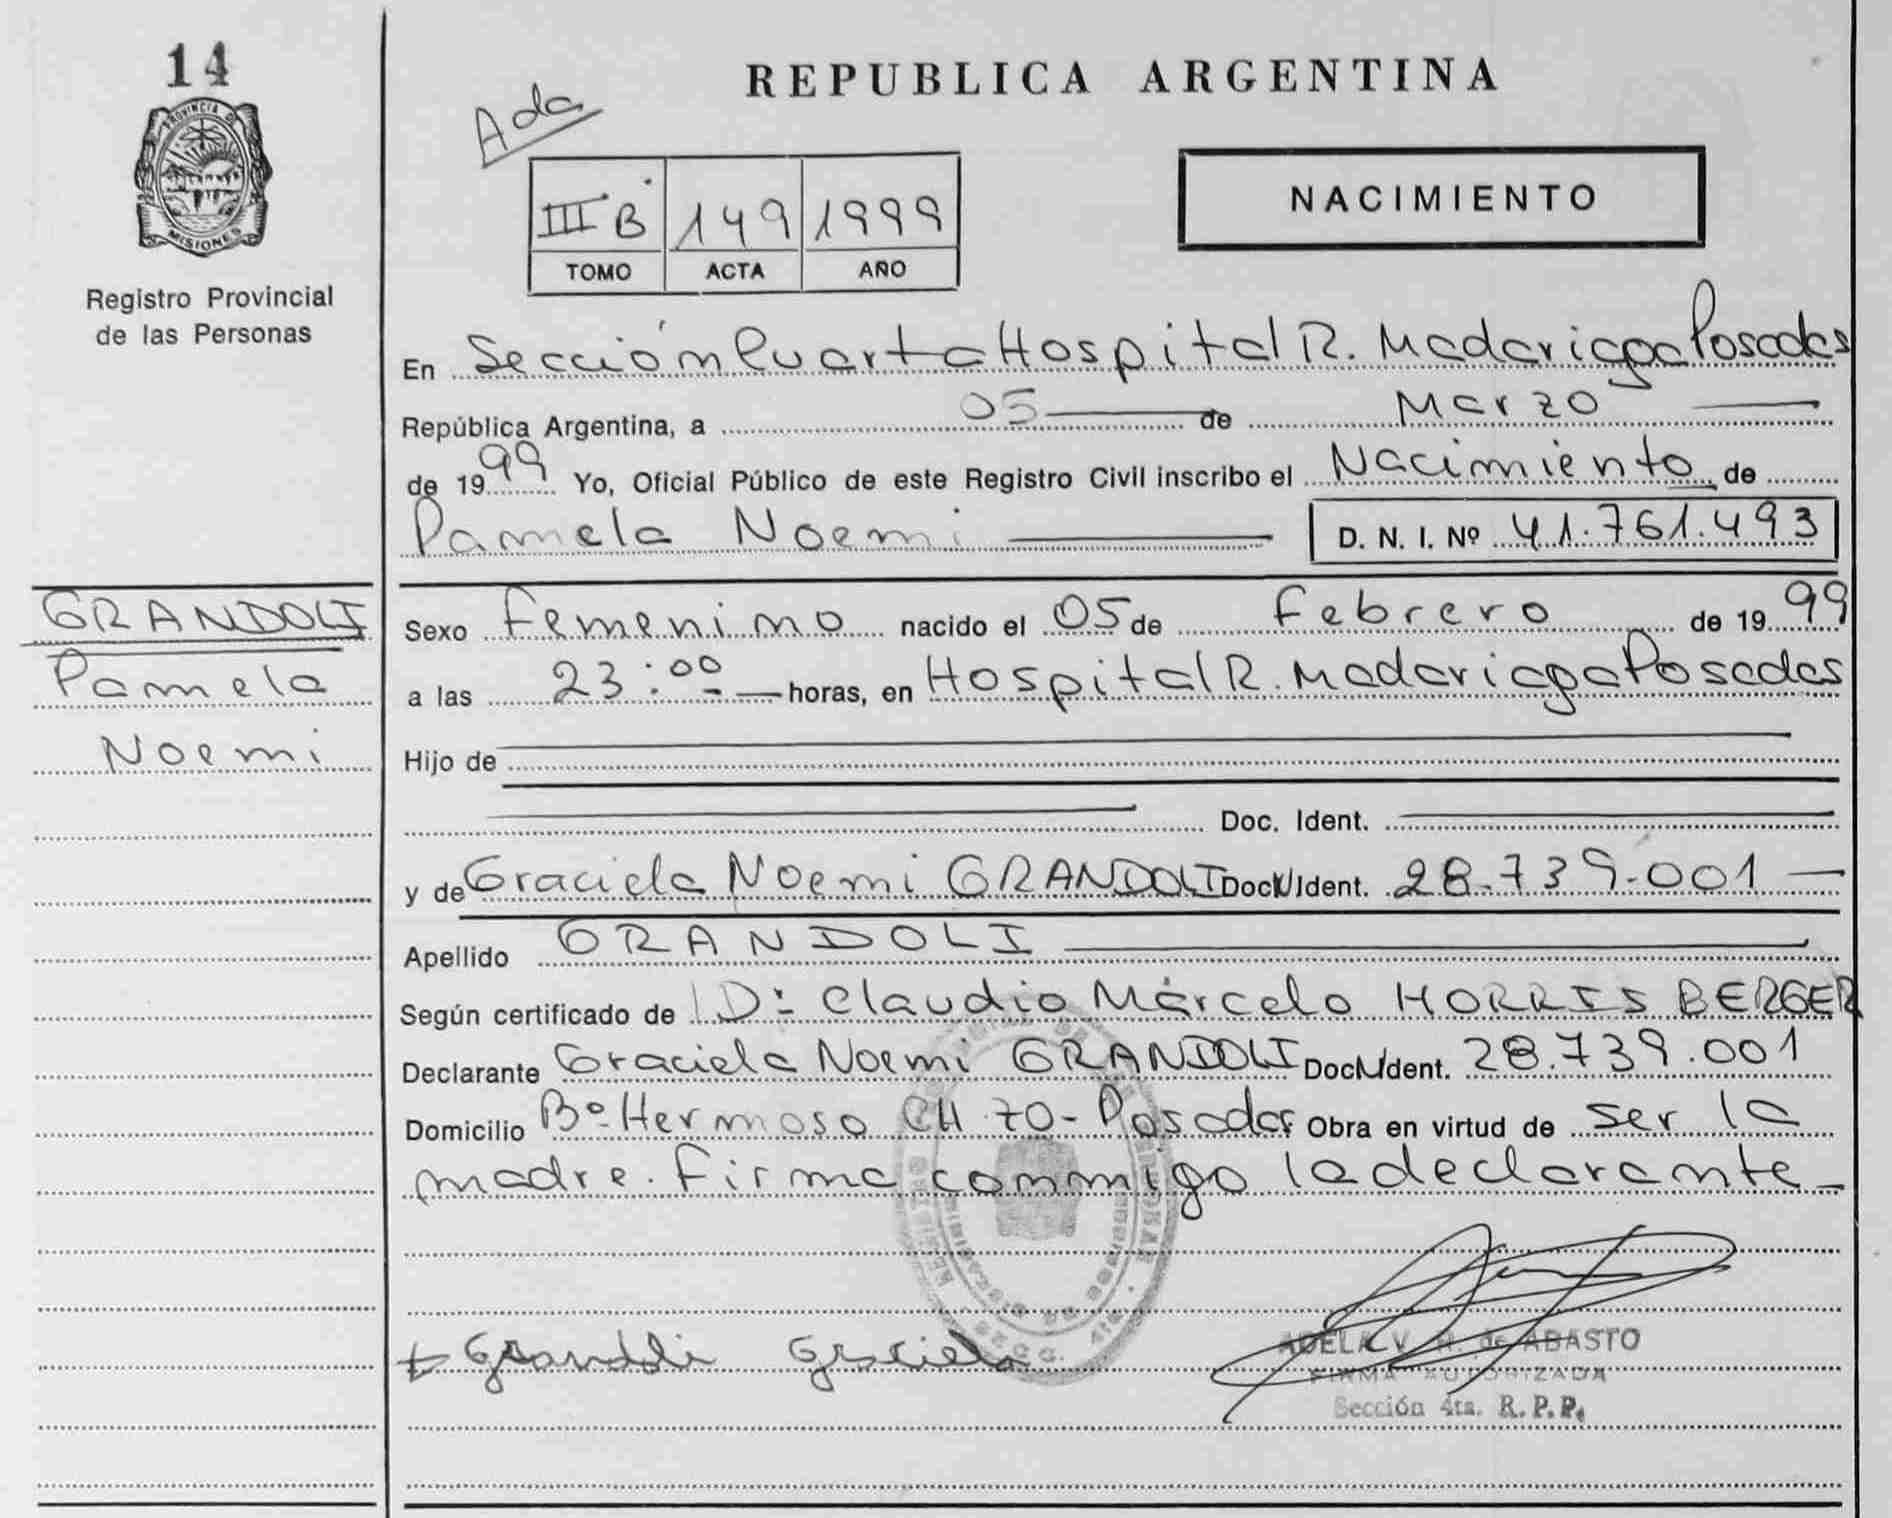 14
PROVINCIA DE
MISIONES
Registro Provincial
de las Personas
GRANDOLI
Pamela
Noemi
REPUBLICA ARGENTINA
Ada
III B 149 1999
TOMO ACTA AÑO
NACIMIENTO
En Sección Cuarta Hospital R. Madariaga Posadas
República Argentina, a 05 de Marzo
de 1999 Yo, Oficial Público de este Registro Civil inscribo el Nacimiento de
Pamela Noemi D. N. I. Nº 41.761.493
Sexo Femenino nacido el 05 de Febrero de 1999
a las 23:00 horas, en Hospital R. Madariaga Posadas
Hijo de
Doc. Ident.
y de Graciela Noemi GRANDOLI Doc. Ident. 28.739.001
Apellido GRANDOLI
Según certificado de Claudio Marcelo HORRISBERGER
Declarante Graciela Noemi GRANDOLI Doc. Ident. 28.739.001
Domicilio Bº Hermoso CH 70 - Posadas Obra en virtud de ser la
madre. Firma conmigo la declarante
Grandoli Graciela
ADELA V. de ABASTO
FIRMA AUTORIZADA
Sección 4ta. R.P.P.